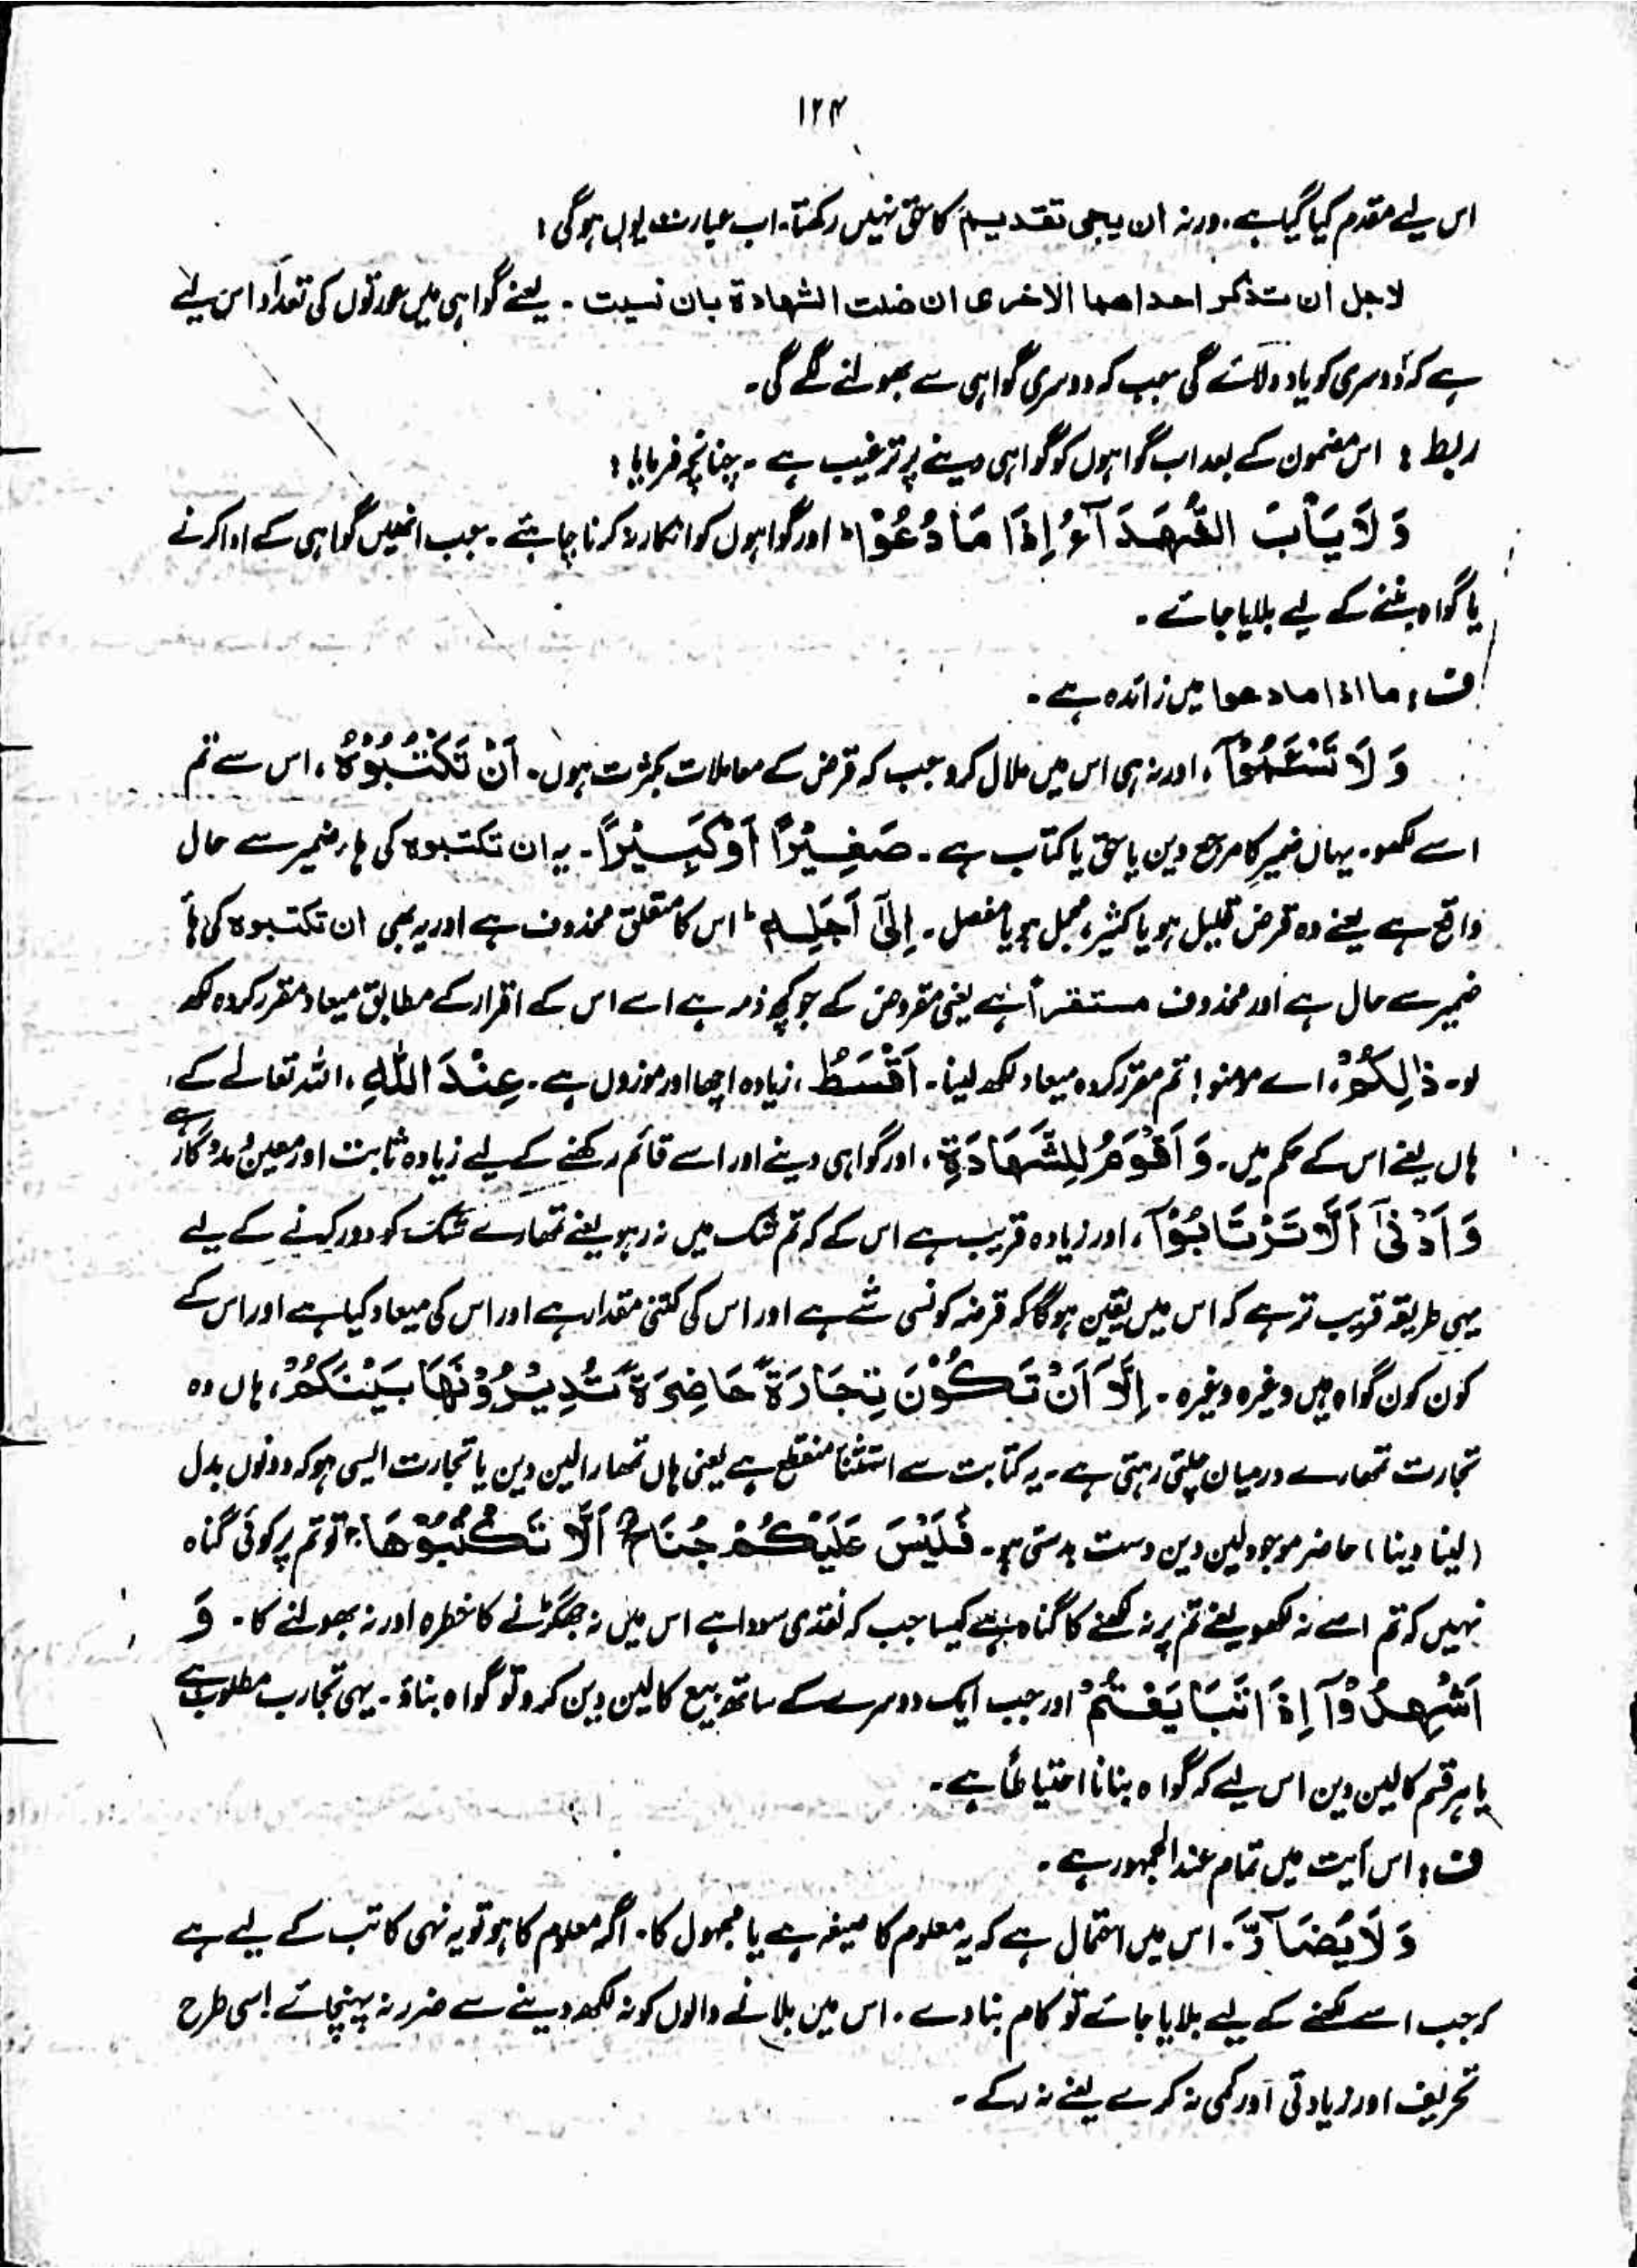 ۱۲۴
اس لیے مقدم کیا گیا ہے۔ ورنہ ان یجی تقدیم کا حق نہیں رکھتا۔ اب عبارت یوں ہوگی :
لاجل ان تذکر احداھما الاخری ان ضلت الشھادة بان نسیت ۔ یعنے گواہی میں عورتوں کی تعداد اس لیے
ہے کہ دوسری کو یاد دلائے گی جب کہ دوسری گواہی سے بھولنے لگے گی۔
ربط : اس مضمون کے بعد اب گواہوں کو گواہی دینے پر ترغیب ہے ۔ چنانچہ فرمایا :
وَلَا یَأْبَ الشُّهَدَآءُ إِذَا مَا دُعُوْا ؕ اور گواہوں کو انکار نہ کرنا چاہئے ۔ جب انھیں گواہی کے ادا کرنے
یا گواہ بننے کے لیے بلایا جائے ۔
ف : ما اذا ما دعوا میں زائدہ ہے ۔
وَلَا تَسْئَمُوْٓا ، اور نہ ہی اس میں ملال کرو جب کہ قرض کے معاملات بکثرت ہوں۔ اَنْ تَکْتُبُوْهُ ، اس سے تم
اسے لکھو۔ یہاں ضمیر کا مرجع دین یا حق یا کتاب ہے ۔ صَغِیْرًا اَوْ کَبِیْرًا ۔ یہ ان تکتبوہ کی ہا ضمیر سے حال
واقع ہے یعنے وہ قرض قلیل ہو یا کثیر ، مجمل ہو یا مفصل ۔ اِلٰٓی اَجَلِہٖ ؕ اس کا متعلق محذوف ہے اور یہ بھی ان تکتبوہ کی ہا
ضمیر سے حال ہے اور محذوف مستقراً ہے یعنی مقروض کے جو کچھ ذمہ ہے اسے اس کے اقرار کے مطابق میعاد مقرر کردہ لکھ
لو۔ ذٰلِکُمْ ، اے مومنو! تم مقرر کردہ میعاد لکھ لینا ۔ اَقْسَطُ ، زیادہ اچھا اور موزوں ہے ۔ عِنْدَ اللّٰهِ ، اللہ تعالےٰ کے
ہاں یعنے اس کے حکم میں ۔ وَ اَقْوَمُ لِلشَّهَادَةِ ، اور گواہی دینے اور اسے قائم رکھنے کے لیے زیادہ ثابت اور معین و مددگار ہے
وَ اَدْنٰٓی اَلَّا تَرْتَابُوْٓا ، اور زیادہ قریب ہے اس کے کہ تم شک میں نہ رہو یعنے تمھارے شک کو دور کرنے کے لیے
یہی طریقہ قریب تر ہے کہ اس میں یقین ہوگا کہ قرضہ کونسی شے ہے اور اس کی کتنی مقدار ہے اور اس کی میعاد کیا ہے اور اس کے
کون کون گواہ ہیں وغیرہ وغیرہ ۔ اِلَّآ اَنْ تَکُوْنَ تِجَارَةً حَاضِرَةً تُدِیْرُوْنَهَا بَیْنَکُمْ ، ہاں وہ
تجارت تمھارے درمیان چلتی رہتی ہے ۔ یہ کتابت سے استثنا منقطع ہے یعنی ہاں تمھارا لین دین یا تجارت ایسی ہو کہ دونوں بدل
(لینا دینا) حاضر موجود لین دین دست بدستی ہو۔ فَلَیْسَ عَلَیْکُمْ جُنَاحٌ اَلَّا تَکْتُبُوْهَا ؕ تو تم پر کوئی گناہ
نہیں کہ تم اسے نہ لکھو یعنے تم پر نہ لکھنے کا گناہ ہے کیسا جب کہ نقدی سودا ہے اس میں نہ جھگڑنے کا خطرہ اور نہ بھولنے کا ۔ وَ
اَشْهِدُوْٓا اِذَا تَبَایَعْتُمْ اور جب ایک دوسرے کے ساتھ بیع کا لین دین کرو تو گواہ بناؤ ۔ یہی تجارب مطلوب ہے
یا ہر قسم کا لین دین اس لیے کہ گواہ بنانا احتیاطاً ہے ۔
ف : اس آیت میں تمام عند الجمہور ہے ۔
وَ لَا یُضَآرَّ ۔ اس میں احتمال ہے کہ یہ معلوم کا صیغہ ہے یا مجہول کا ۔ اگر معلوم کا ہو تو یہ نہی کاتب کے لیے ہے
کہ جب اسے لکھنے کے لیے بلایا جائے تو کام بنا دے ۔ اس میں بلانے والوں کو نہ لکھ دینے سے ضرر نہ پہنچائے اسی طرح
تحریف اور زیادتی اور کمی نہ کرے یعنے نہ رکے ۔